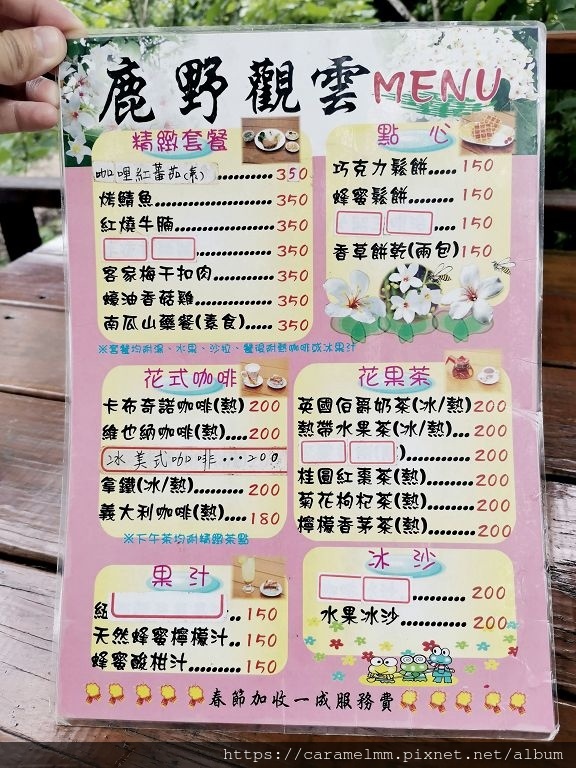 鹿野觀雲 MENU
精緻套餐
咖哩紅蕃茄(素)..........350
烤鯖魚....................350
紅燒牛腩................350
................350
客家梅干扣肉..........350
蠔油香菇雞.............350
南瓜山藥餐(素食).....350
※套餐均附湯、水果、沙拉、餐後附熱咖啡或冰果汁
點心
巧克力鬆餅....150
蜂蜜鬆餅.......150
....150
香草餅乾(兩包)150
花式咖啡
卡布奇諾咖啡(熱)200
維也納咖啡(熱)....200
冰美式咖啡...200
拿鐵(冰/熱)..........200
義大利咖啡(熱).....180
※下午茶均附精緻茶點
花果茶
英國伯爵奶茶(冰/熱)200
熱帶水果茶(冰/熱)...200
)..........200
桂圓紅棗茶(熱)......200
菊花枸杞茶(熱)......200
檸檬香茅茶(熱)......200
果汁
..150
天然蜂蜜檸檬汁..150
蜂蜜酸柑汁.........150
冰沙
..........200
水果冰沙...........200
春節加收一成服務費
https://caramelmm.pixnet.net/album